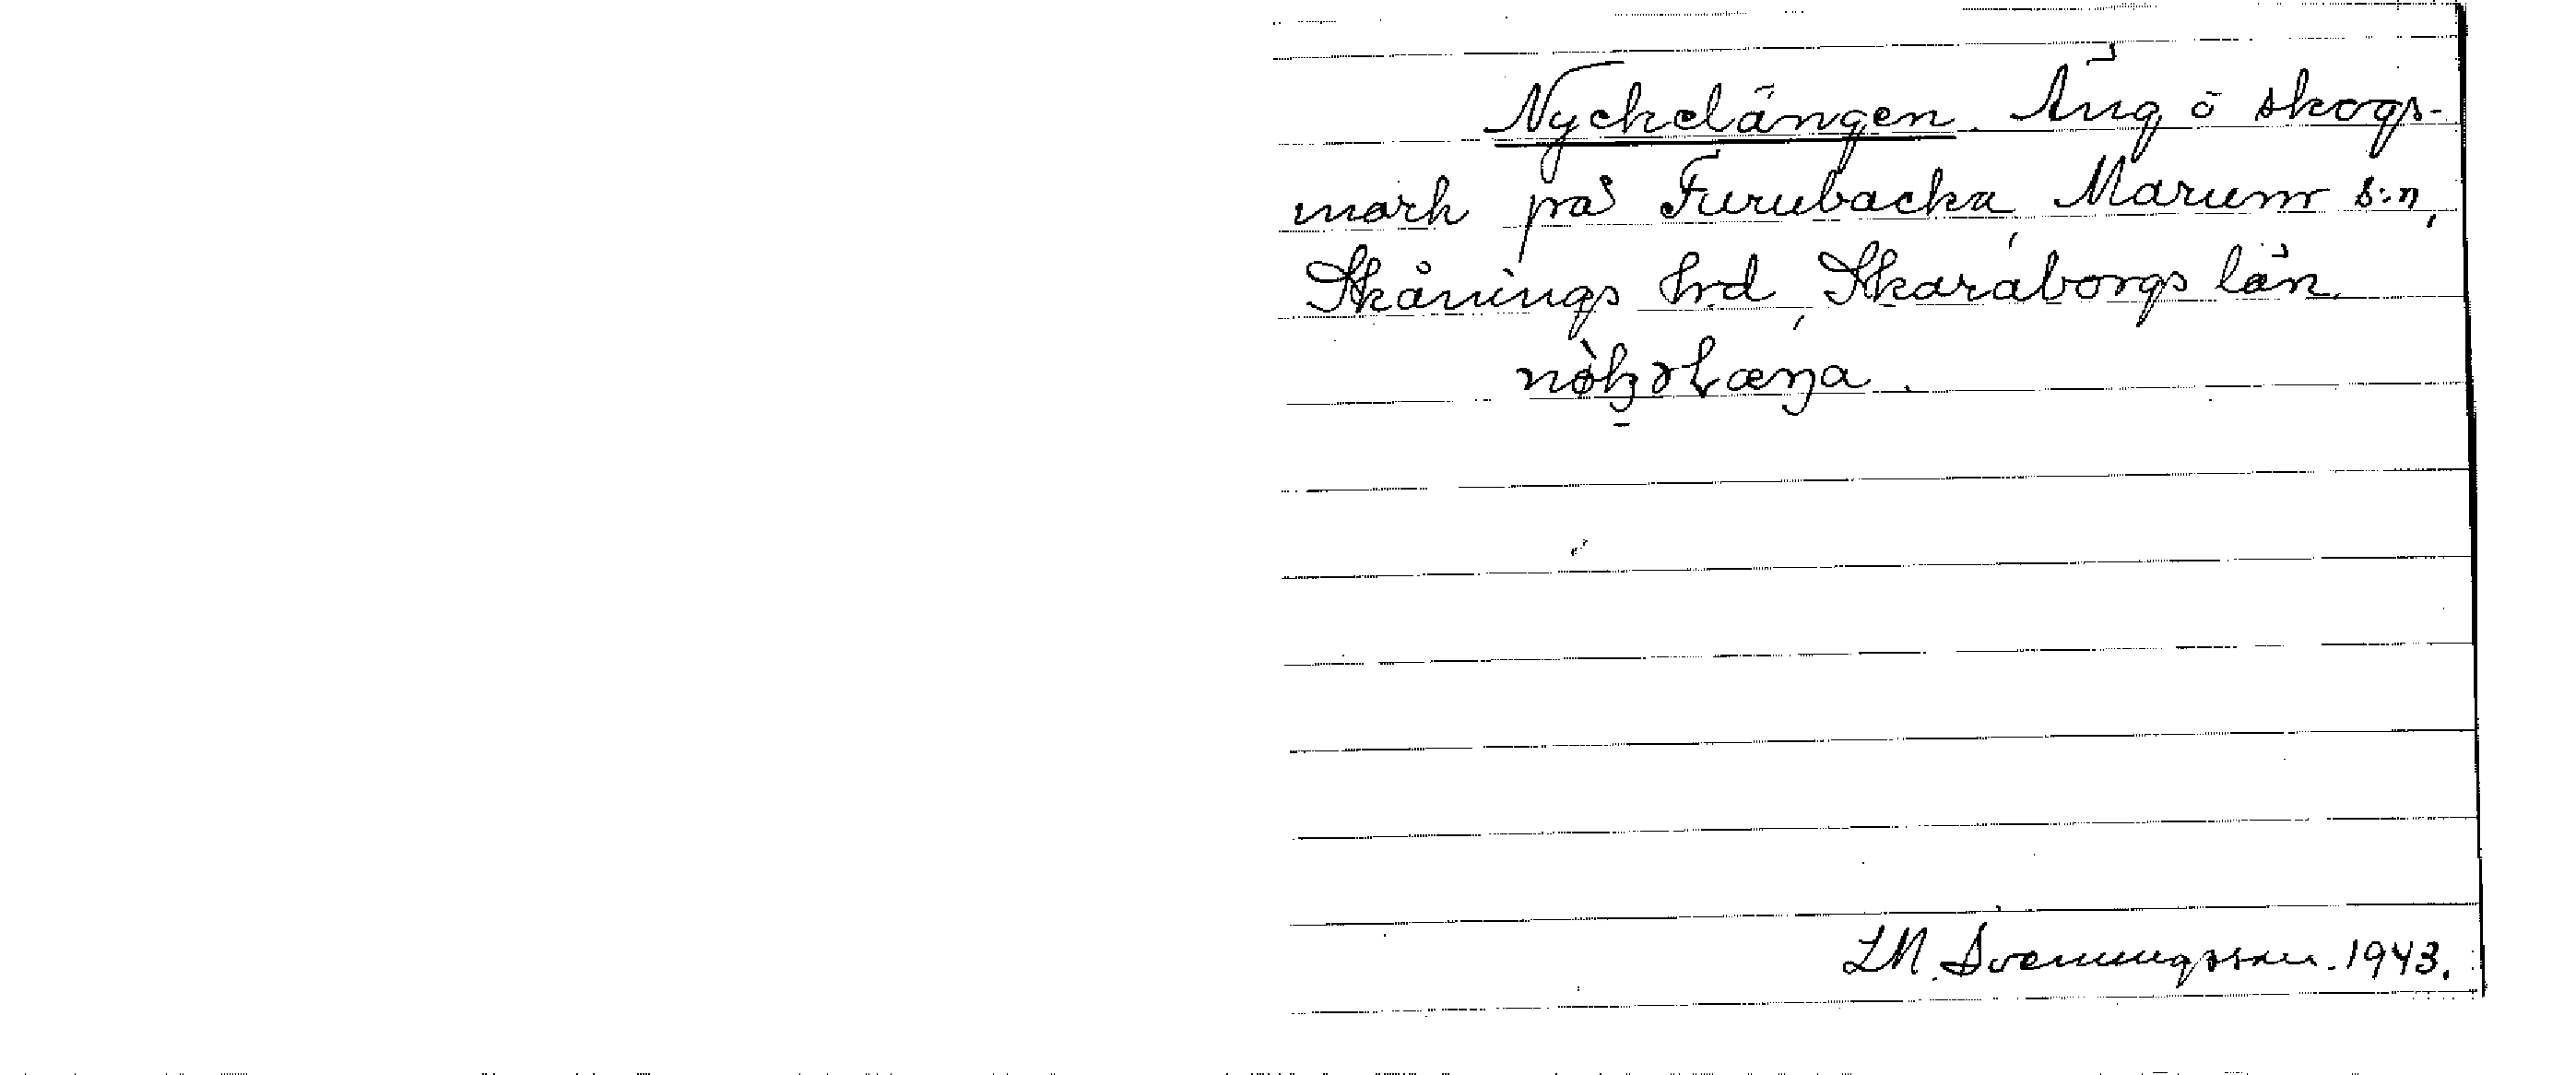 Nyckelängen. Äng o skogs-
mark på Furubacka, Marum s:n,
Skånings hrd, Skaraborgs län.
L M. Svenungsson. 1943.